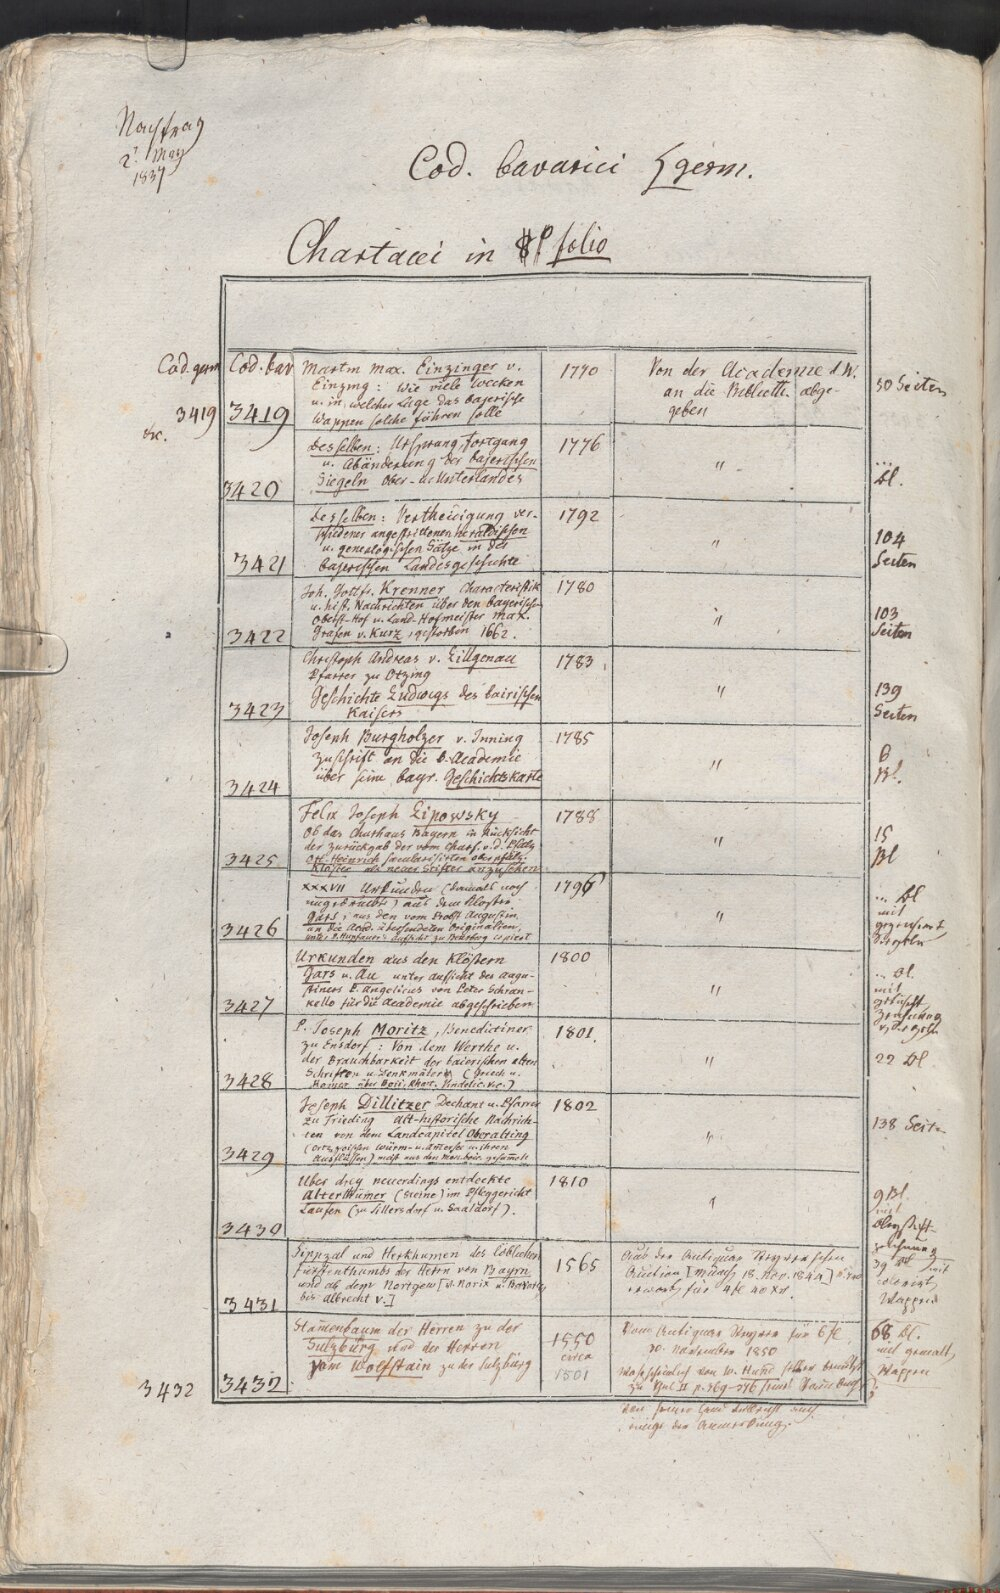 Nachtrag
2. May
1837
Cod. bavarici germ.
Chartacei in folio
Cod. germ
3419
etc.
Cod. bav
3419
Martin Max. Einzinger v.
Einzing: Wie viele Wecken
u. in welcher Lage das bajerische
Wappen solche führen solle
1770
Von der Academie d. W.
an die Biblioth. abge-
geben
50 Seiten
3420
Desselben: Ursprung, Fortgang
u. Abänderung der bajerischen
Siegeln Ober- u. Unterlandes
1776
"
... Bl.
3421
Desselben: Vertheidigung ver-
schiedener angestrittenen heraldischen
u. genealogischen Sätze in der
bajerischen Landesgeschichte
1792
"
104
Seiten
3422
Joh. Gottfr. Krenner Characteristik
u. hist. Nachrichten über den bayerisch.
Oberst-Hof u. Land-Hofmeister Max.
Grafen v. Kurz, gestorben 1662.
1780
"
103
Seiten
3423
Christoph Andreas v. Lillgenau
Pfarrer zu Otzing
Geschichte Ludwigs des bairischen
Kaisers
1783
"
139
Seiten
3424
Joseph Burgholzer v. Inning
Zuschrift an die b. Academie
über seine bayr. Geschichtskarte
1785
"
6
Bl.
3425
Felix Joseph Lipowsky
Ob das Churhaus Bayern in Rücksicht
der Zurückgab der vom Churf. v. d. Pfalz
Ott-Heinrich saecularisirten oberpfälz.
Klöster als neuer Stifter anzusehen
1788
"
15
Bl
3426
XXXVII Urkunden (damals noch
ungedruckt) aus dem Kloster
Gars, aus den vom Probst Augustin
an die Acad. übersendeten Originalien,
1796
"
... Bl
mit
3427
Urkunden aus den Klöstern
Gars u. Au unter Aufsicht des Augu-
stiners P. Angelicus von Peter Schran-
kello für die Academie abgeschrieben
1800
"
... Bl.
mit
Zeichnung
3428
P. Joseph Moritz, Benedictiner
zu Ensdorf: Von dem Werthe u.
der Brauchbarkeit der baierischen alten
Schriften u. Denkmälern (Griech u.
1801.
"
22 Bl
3429
Joseph Dillitzer Dechant u. Pfarrer
zu Frieding alt-historische Nachrich-
ten von dem Landcapitel Oberalting
(Ort zwischen Würm- u. Amersee u. ihren
Ausflüssen) meist aus den Mon. boic. gesammelt
1802
"
138 Seiten
3430
Uber drey neuerdings entdeckte
Alterthümer (Steine) im Pfleggericht
Laufen (zu Sillersdorf u. Saaldorf).
1810
"
9 Bl.
mit
Bleystift-
zeichnung
3431
Sippzal und Herkhumen des loblichen
Fürstenthumbs der Herrn von Bayrn
und ab dem Nortgew
bis Albrecht V.]
1565
Aus der Antiquar
Auction [München 18. Nov. 1844]
erworben für 4 fl 40 xr.
39 Bl mit
colorirt.
Wappen
3432
3432
Stamenbaum der Herren zu der
Sulzbürg und der Herren
vom Wolfstain zu der Sulzbürg
1550
circa
1501
Vom Antiquar für 6 fl
30. November 1850
68 Bl.
mit gemalt.
Wappen